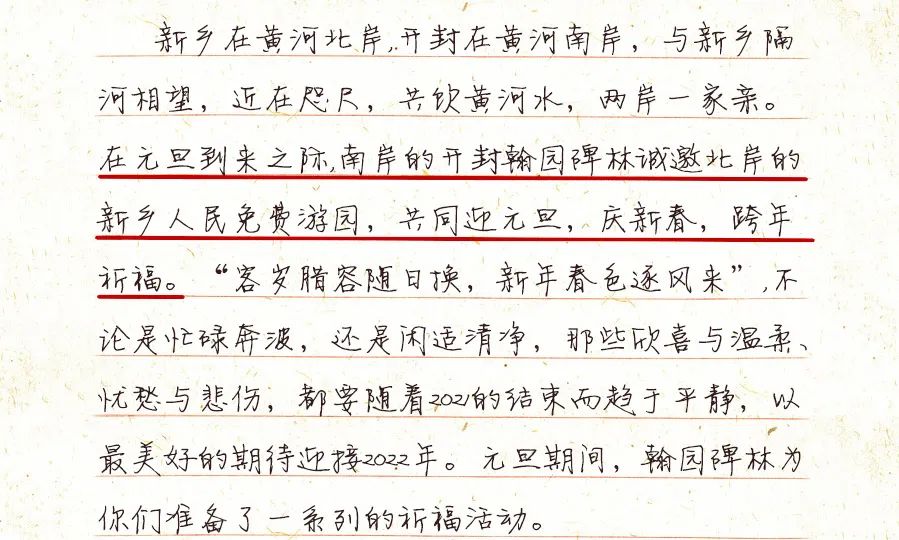 新乡在黄河北岸,开封在黄河南岸，与新乡隔
河相望，近在咫尺，共饮黄河水，两岸一家亲。
在元旦到来之际,南岸的开封翰园碑林诚邀北岸的
新乡人民免费游园，共同迎元旦，庆新春，跨年
祈福。“客岁腊容随日换，新年春色逐风来”,不
论是忙碌奔波，还是闲适清净，那些欣喜与温柔、
忧愁与悲伤，都要随着2021的结束而趋于平静，以
最美好的期待迎接2022年。元旦期间，翰园碑林为
你们准备了一系列的祈福活动。